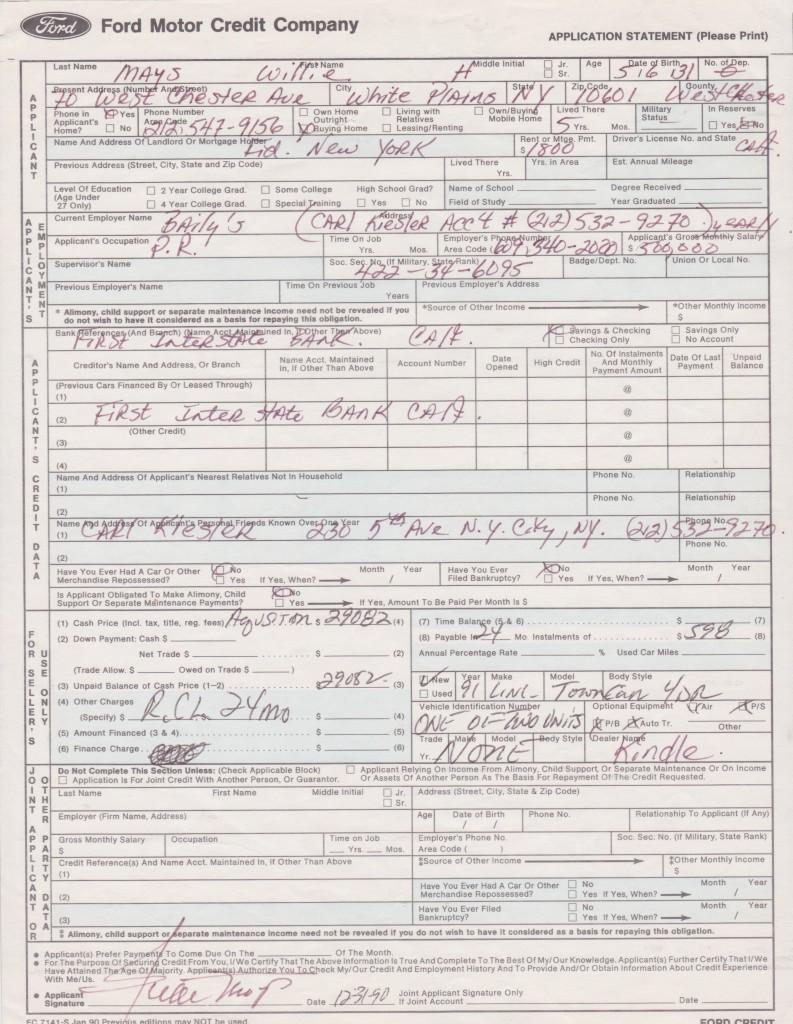 Ford
Ford Motor Credit Company
APPLICATION STATEMENT (Please Print)
APPLICANT
Last Name First Name Middle Initial Jr. Sr. Age Date of Birth No. of Dep.
MAYS Willie H 5 16 131 0
Present Address (Number And Street) City State Zip Code County
70 West Chester Ave White Plains NY 10601 Westchester
Phone in Applicant's Home? Yes No Phone Number Area Code Own Home Outright Buying Home Living with Relatives Leasing/Renting Own/Buying Mobile Home Lived There Yrs. Mos. Military Status In Reserves Yes No
212, 547-9156 5
Name And Address Of Landlord Or Mortgage Holder Rent or Mtge. Pmt. Driver's License No. and State
New York $ 1800 Calf.
Previous Address (Street, City, State and Zip Code) Lived There Yrs. Yrs. in Area Est. Annual Mileage
Level Of Education (Age Under 27 Only) 2 Year College Grad. Some College High School Grad? Name of School Degree Received
4 Year College Grad. Special Training Yes No Field of Study Year Graduated
APPLICANT'S EMPLOYMENT
Current Employer Name Address
Baily's (CARl Kiesler Acct # (212) 532-9270.) yearly
Applicant's Occupation Time On Job Yrs. Mos. Employer's Phone Number Area Code ( Applicant's Gross Monthly Salary
P.R. 609, 340-2020 $ 500,000
Supervisor's Name Soc. Sec. No. (If Military, State Rank) Badge/Dept. No. Union Or Local No.
422-34-6095
Previous Employer's Name Time On Previous Job Years Previous Employer's Address
* Alimony, child support or separate maintenance income need not be revealed if you do not wish to have it considered as a basis for repaying this obligation. *Source of Other Income *Other Monthly Income $
APPLICANT'S CREDIT DATA
Bank References (And Branch) (Name Acct. Maintained In, If Other Than Above) Savings & Checking Checking Only Savings Only No Account
First Interstate BANK. Calf.
Creditor's Name And Address, Or Branch Name Acct. Maintained In, If Other Than Above Account Number Date Opened High Credit No. Of Instalments And Monthly Payment Amount Date Of Last Payment Unpaid Balance
(Previous Cars Financed By Or Leased Through)
(1) @
(2) First Inter State BANK Calf. @
(Other Credit)
(3) @
(4) @
Name And Address Of Applicant's Nearest Relatives Not In Household Phone No. Relationship
(1)
(2) Phone No. Relationship
Name And Address Of Applicant's Personal Friends Known Over One Year Phone No.
(1) CARl Kiesler 230 5th Ave N.Y. City, NY. (212) 532-9270.
(2) Phone No.
Have You Ever Had A Car Or Other Merchandise Repossessed? No Yes If Yes, When? Month Year / Have You Ever Filed Bankruptcy? No Yes If Yes, When? Month Year /
Is Applicant Obligated To Make Alimony, Child Support Or Separate Maintenance Payments? No Yes If Yes, Amount To Be Paid Per Month Is $
FOR SELLER'S USE ONLY
(1) Cash Price (Incl. tax, title, reg. fees) $ 29082 (4)
(2) Down Payment: Cash $
Net Trade $ $ (2)
(Trade Allow. $ Owed on Trade $ )
(3) Unpaid Balance of Cash Price (1–2) $ 29082. (3)
(4) Other Charges
(Specify) $ 24 mo $ (4)
(5) Amount Financed (3 & 4) $ (5)
(6) Finance Charge $ (6)
(7) Time Balance (5 & 6) $ (7)
(8) Payable In 24 Mo. Instalments of $ 598 (8)
Annual Percentage Rate % Used Car Miles
New Used Year Make Model Body Style
91 LINC- Town Car 4 DR
Vehicle Identification Number Optional Equipment Air P/S
ONE OF TWO UNITS P/B Auto Tr. Other
Trade Yr. Make Model Body Style Dealer Name
NONE Kindle.
JOINT APPLICANT OR OTHER PARTY DATA
Do Not Complete This Section Unless: (Check Applicable Block) Applicant Relying On Income From Alimony, Child Support, Or Separate Maintenance Or On Income
Application Is For Joint Credit With Another Person, Or Guarantor. Or Assets Of Another Person As The Basis For Repayment Of The Credit Requested.
Last Name First Name Middle Initial Jr. Sr. Address (Street, City, State & Zip Code)
Employer (Firm Name, Address) Age Date of Birth / / Phone No. Relationship To Applicant (If Any)
Gross Monthly Salary $ Occupation Time on Job Yrs. Mos. Employer's Phone No. Area Code ( ) Soc. Sec. No. (If Military, State Rank)
Credit Reference(s) And Name Acct. Maintained In, If Other Than Above ‡Source of Other Income ‡Other Monthly Income $
(1)
(2) Have You Ever Had A Car Or Other Merchandise Repossessed? No Yes If Yes, When? Month Year /
(3) Have You Ever Filed Bankruptcy? No Yes If Yes, When? Month Year /
‡ Alimony, child support or separate maintenance income need not be revealed if you do not wish to have it considered as a basis for repaying this obligation.
• Applicant(s) Prefer Payments To Come Due On The Of The Month.
• For The Purpose Of Securing Credit From You, I/We Certify That The Above Information Is True And Complete To The Best Of My/Our Knowledge. Applicant(s) Further Certify That I/We
Have Attained The Age Of Majority. Applicant(s) Authorize You To Check My/Our Credit And Employment History And To Provide And/Or Obtain Information About Credit Experience
With Me/Us.
• Applicant Signature Willie Mays Date 12-31-90 Joint Applicant Signature Only If Joint Account Date
FC 7141-S Jan 90 Previous editions may NOT be used. FORD CREDIT